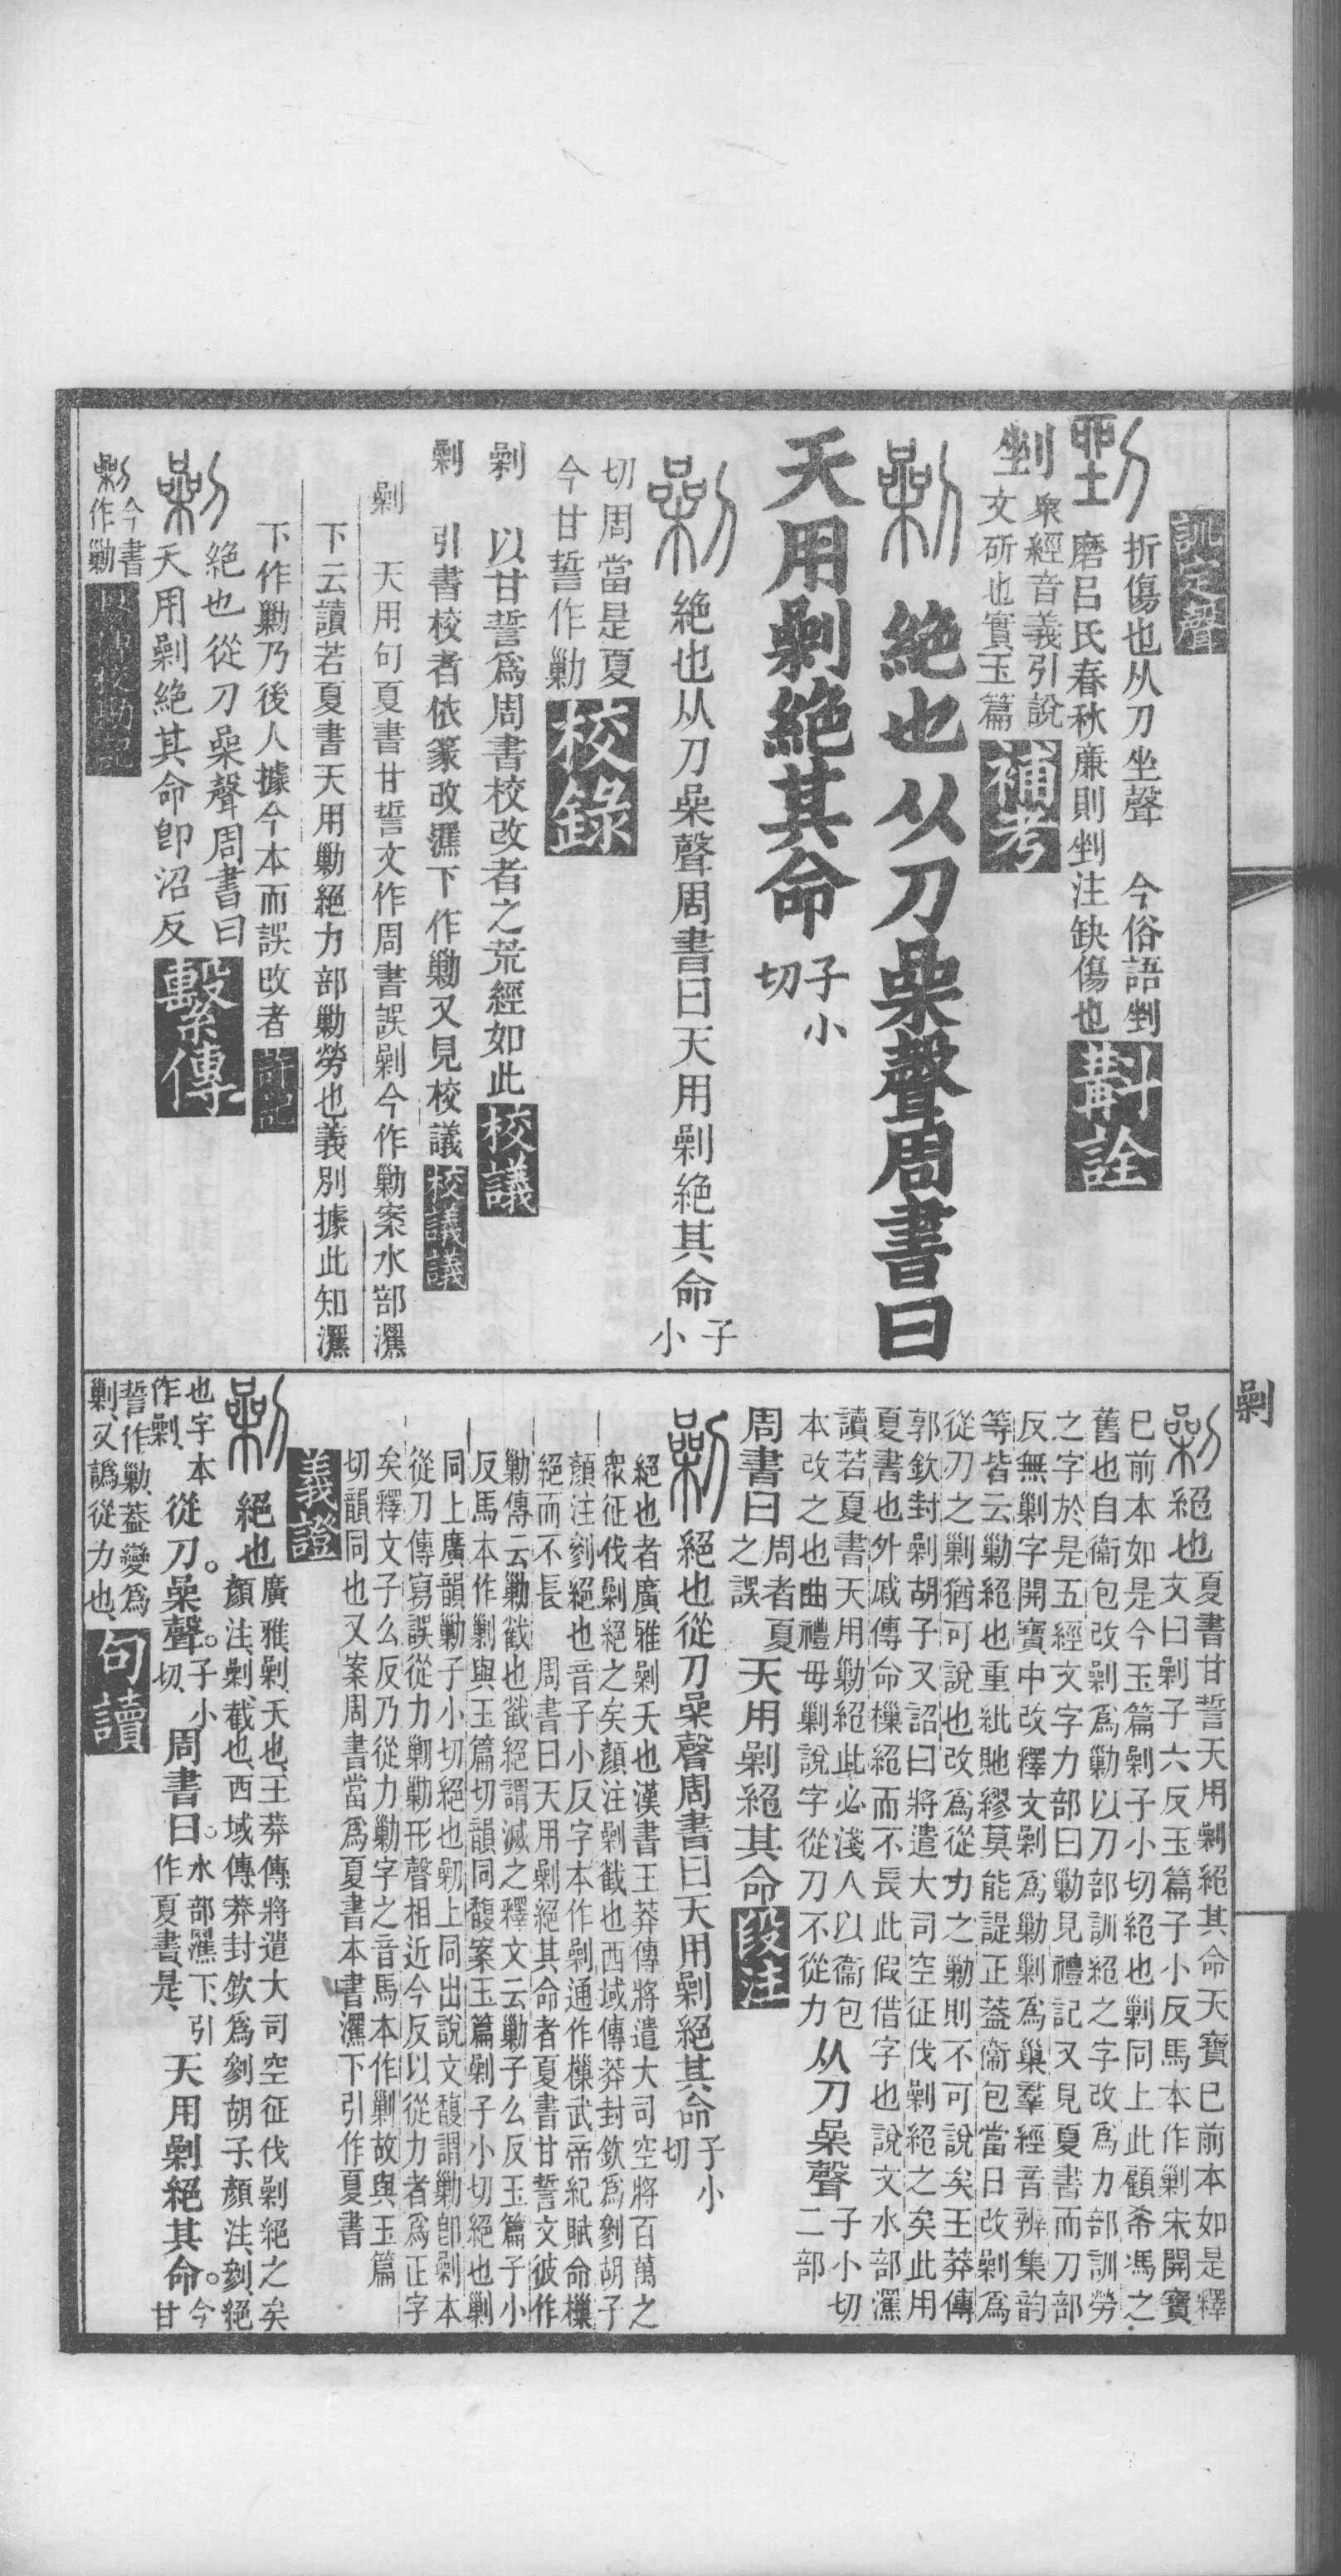 訓定聲
折傷也从刀坐聲　今俗語剉
磨呂氏春秋廉則剉注缺傷也
斠詮
剉
衆經音義引說
文斫也實玉篇
補考
絕也从刀喿聲周書曰
天用剿絕其命
子小
切
絕也从刀喿聲周書曰天用剿絕其命
子
小
切周當是夏
今甘誓作勦
校錄
剿　以甘誓爲周書校改者之荒經如此
校議
剿　引書校者依篆改灑下作勦又見校議
校議議
剿　天用句夏書甘誓文作周書誤剿今作勦案水部灑
下云讀若夏書天用勦絕力部勦勞也義別據此知灑
下作勦乃後人據今本而誤改者
許記
絕也從刀喿聲周書曰
天用剿絕其命卽沼反
繫傳
今書
作勦
繫傳校勘記
剿
絕也
夏書甘誓天用剿絕其命天寶已前本如是釋
文曰剿子六反玉篇子小反馬本作剿宋開寶
已前本如是今玉篇剿子小切絕也剿同上此顧希馮之
舊也自衞包改剿爲勦以刀部訓絕之字改爲力部訓勞
之字於是五經文字力部曰勦見禮記又見夏書而刀部
反無剿字開寶中改釋文剿爲勦剿爲巢羣經音辨集韵
等皆云勦絕也重紕貤繆莫能諟正葢衞包當日改剿爲
從刀之剿猶可說也改爲從力之勦則不可說矣王莽傳
郭欽封剿胡子又詔曰將遣大司空征伐剿絕之矣此用
夏書也外戚傳命樔絕而不長此假借字也說文水部灑
讀若夏書天用勦絕此必淺人以衞包
本改之也曲禮毋剿說字從刀不從力
从刀喿聲
子小切
二部
周書曰
周者夏
之誤
天用剿絕其命
段注
絕也從刀喿聲周書曰天用剿絕其命
子小
切
絕也者廣雅剿夭也漢書王莽傳將遣大司空將百萬之
衆征伐剿絕之矣顏注剿截也西域傳莽封欽爲劋胡子
顏注劋絕也音子小反字本作剿通作樔武帝紀賦命樔
絕而不長　周書曰天用剿絕其命者夏書甘誓文彼作
勦傳云勦截也截絕謂滅之釋文云勦子么反玉篇子小
反馬本作剿與玉篇切韻同馥案玉篇剿子小切絕也剿
同上廣韻勦子小切絕也剿上同出說文馥謂勦卽剿本
從刀傳寫誤從力剿勦形聲相近今反以從力者爲正字
矣釋文子么反乃從力勦字之音馬本作剿故與玉篇
切韻同也又案周書當爲夏書本書灑下引作夏書
義證
絕也
廣雅、剿、夭也、王莽傳、將遣大司空征伐剿絕之矣
顏注、剿、截也、西域傳、莽封欽爲劋胡子、顏注、劋、絕
也字本
作剿、
從刀。喿聲。
子小
切、
周書曰。
水部灑下、引
作夏書、是、
天用剿絕其命。
今
甘
誓作勦、葢變爲
剿、又譌從力也、
句讀